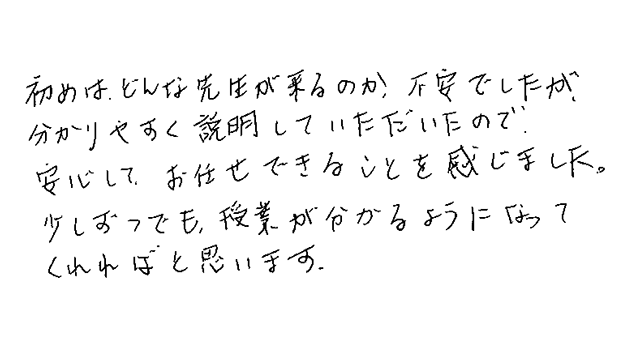 初めは、どんな先生が来るのか、不安でしたが、
分かりやすく説明していただいたので、
安心して、お任せできることを感じました。
少しずつでも、授業が分かるようになって
くれればと思います。